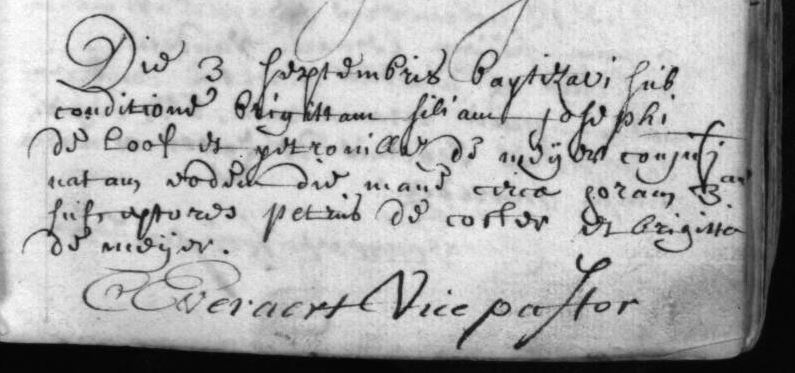 Die 3 septembris baptizavi sub
conditione brigittam filiam josephi
de loof et petronillæ de meÿer conjug
natam eodem die mane circa horam 3 am
susceptores petrus de cocker et brigitta
de meÿer.
Everaert Vice pastor